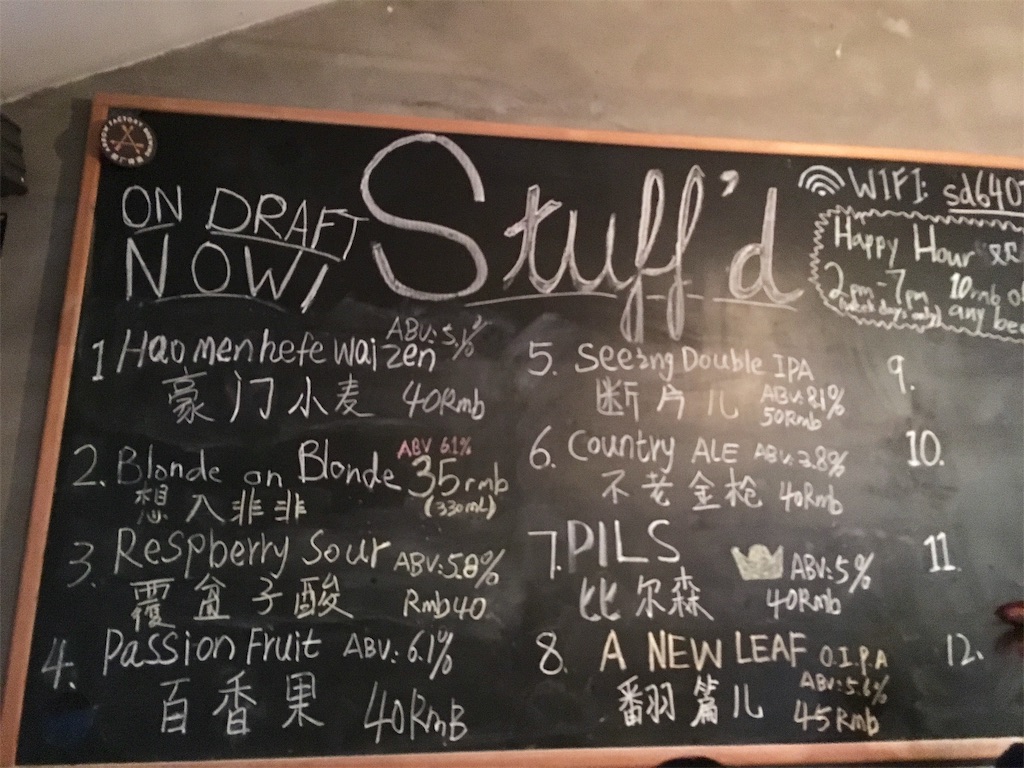 ON DRAFT
NOW!
Stuff'd
WIFI: sd640
Happy Hour
2pm-7pm 10rmb
(week days only) any
1 Hao men hefe waizen ABV: 5.1%
豪门小麦 40Rmb
2. Blonde on Blonde ABV 6.1% 35rmb
想入非非 (330ml)
3. Respberry Sour ABV: 5.8%
覆盆子酸 Rmb40
4. Passion Fruit ABV: 6.1%
百香果 40RmB
5. Seeing Double IPA
断片儿 ABV: 8.1%
50Rmb
6. Country ALE ABV: 3.8%
不老金枪 40Rmb
7. PILS ABV: 5%
比尔森 40Rmb
8. A NEW LEAF O.I.P.A
ABV: 5.6%
翻篇儿 45Rmb
9.
10.
11.
12.